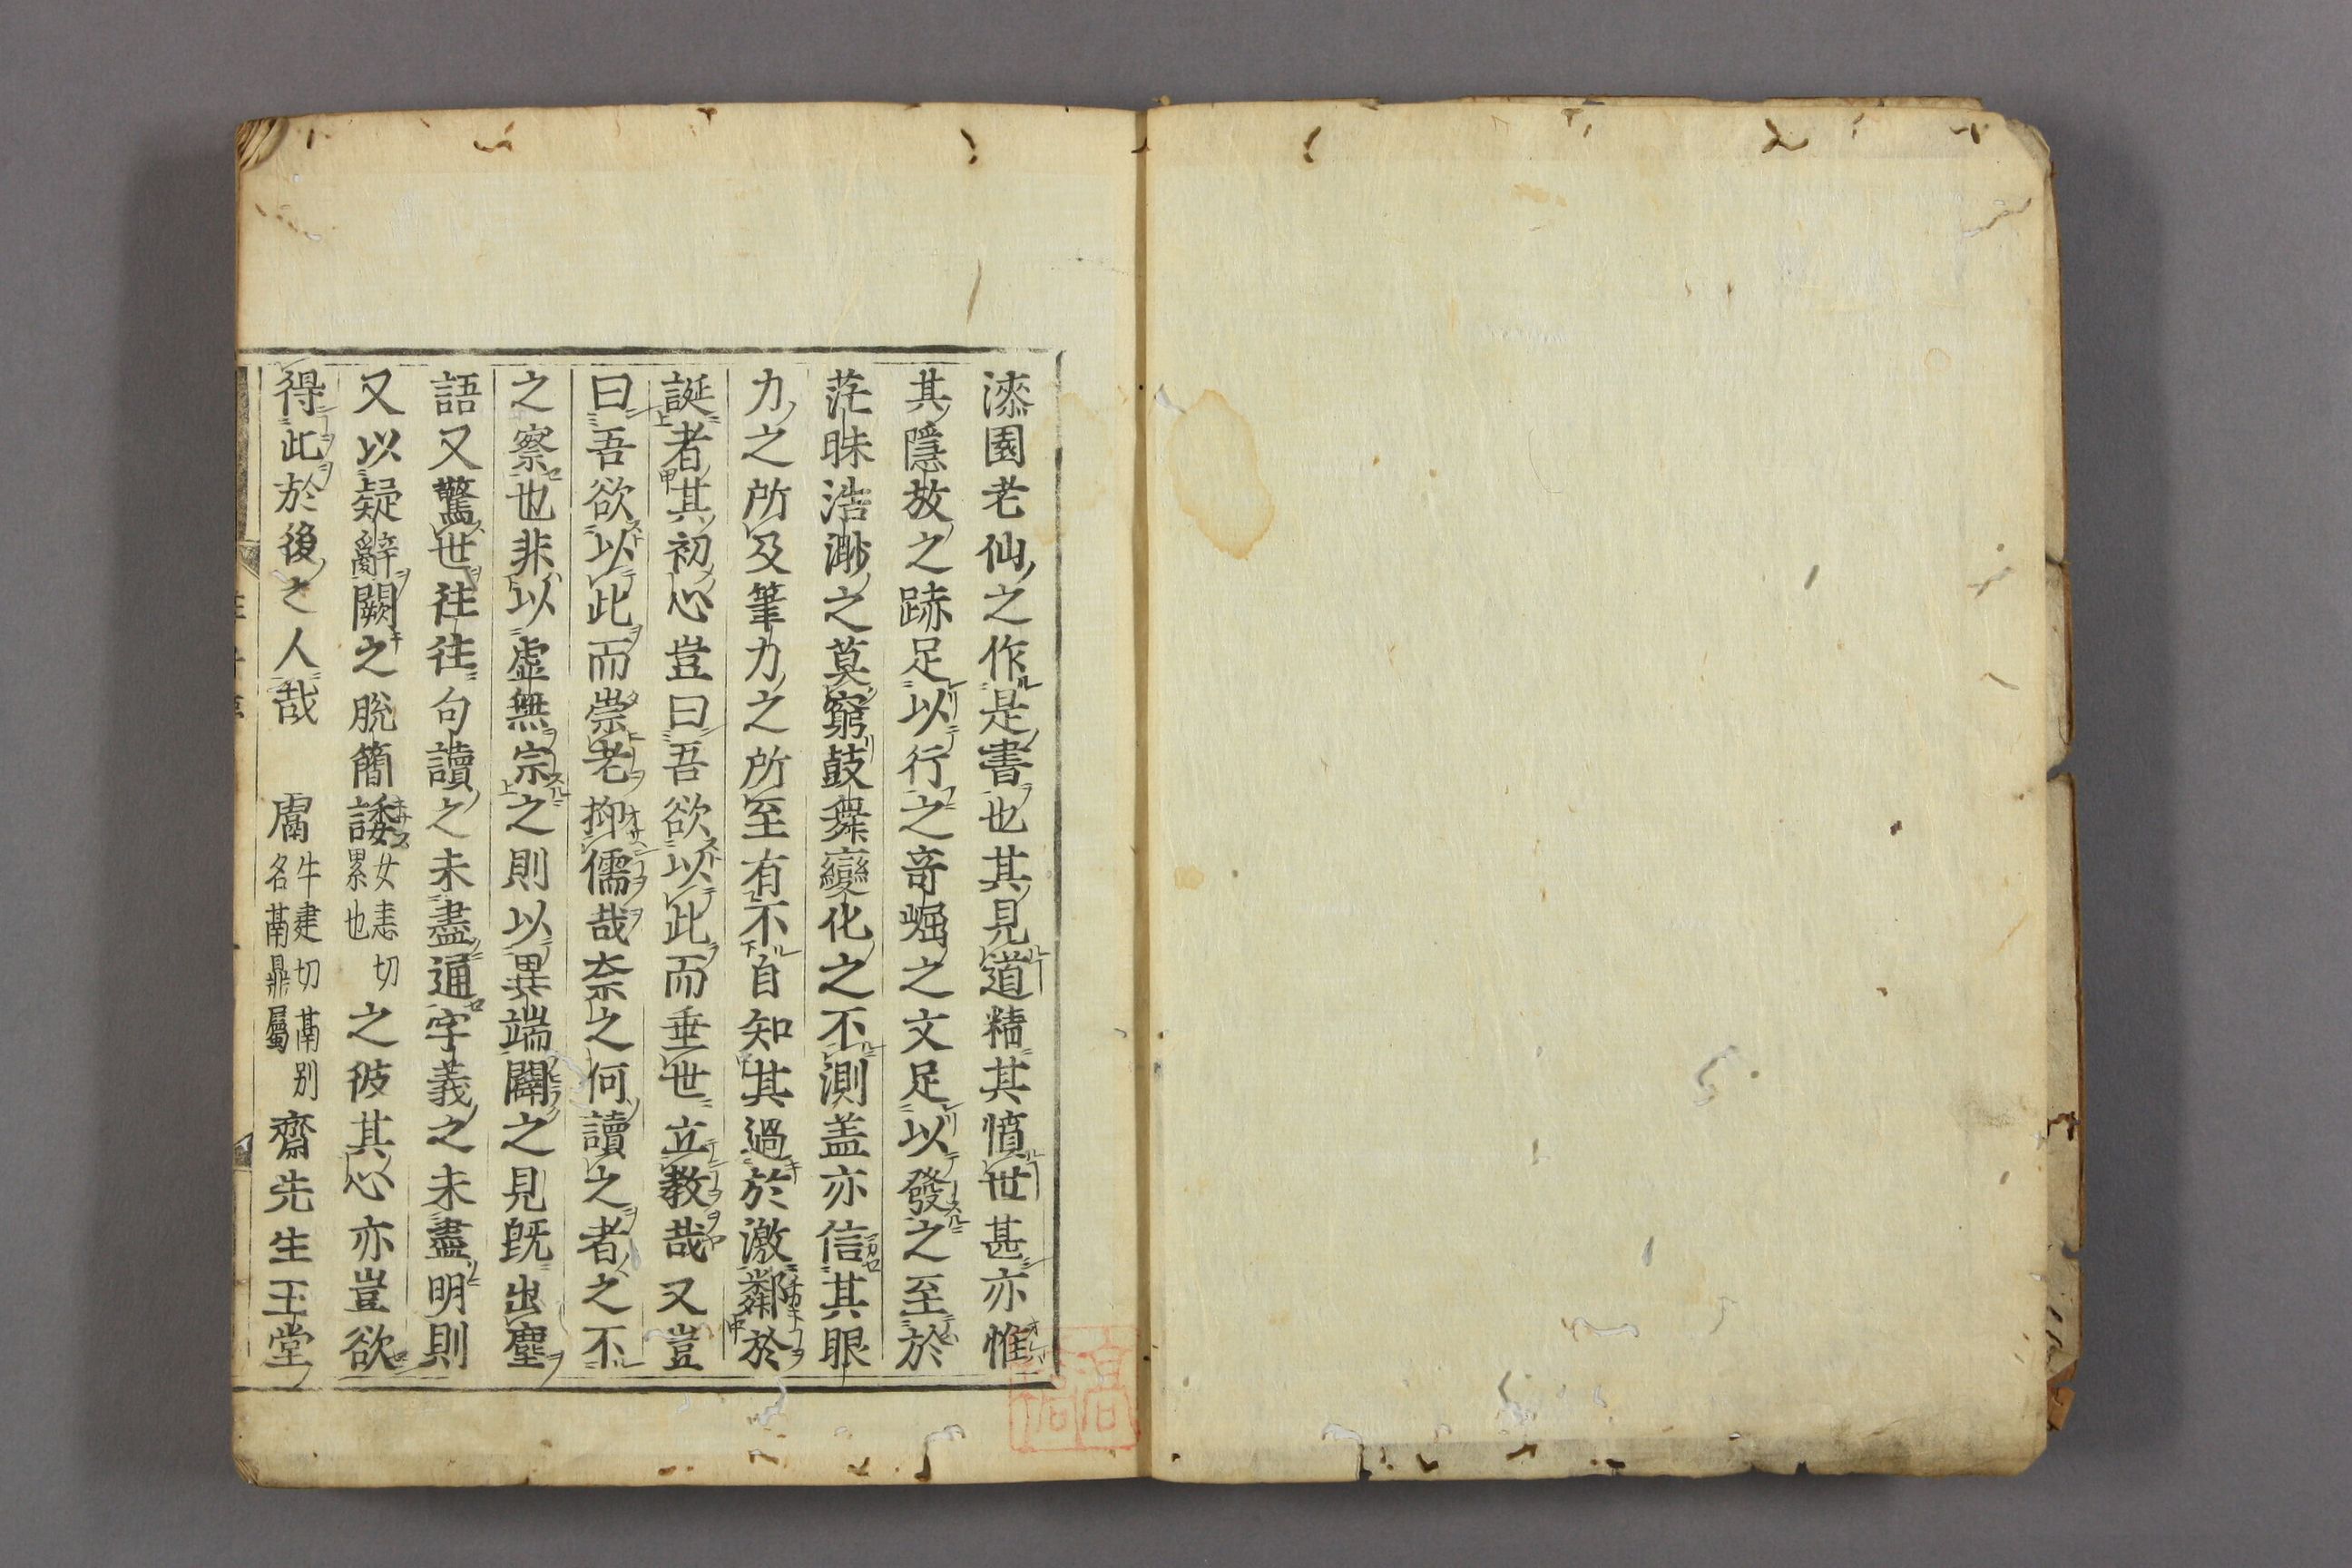 漆園老仙之作是書也其見道精其憤世甚亦惟
其隱放之跡足以行之竒崛之文足以發之至於
茫昧浩渺之莫窮鼓舞變化之不測盖亦信其眼
力之所及筆力之所至有不自知其過於激鄰於
誕者其初心豈曰吾欲以此而垂世立教哉又豈
曰吾欲以此而崇老抑儒哉奈之何讀之者之不
之察也非以虛無宗之則以異端闢之見旣出塵
語又驚世往往句讀之未盡通字義之未盡明則
又以疑辭闕之脫簡諉女恚切累也之彼其心亦豈欲
得此於後之人哉 鬳牛建切鬲别名鬲鼎屬齋先生王堂